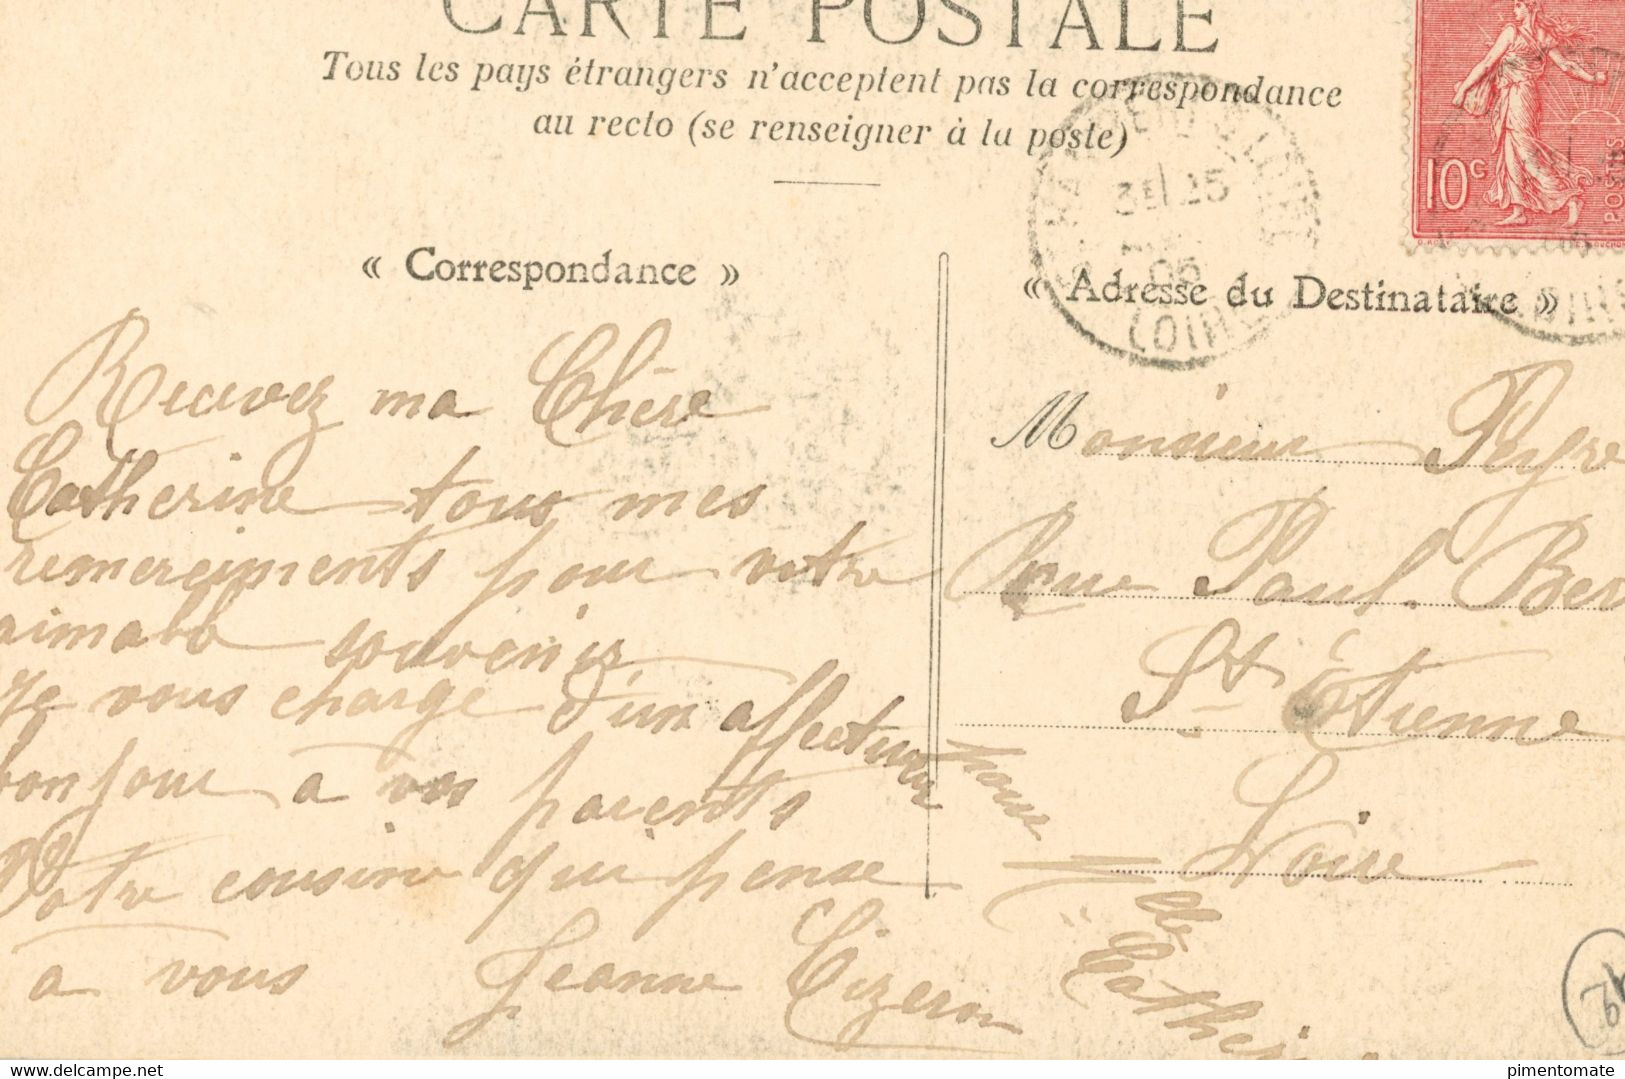 CARTE POSTALE
Tous les pays étrangers n'acceptent pas la correspondance
au recto (se renseigner à la poste)
10 c
POSTES
25
05
LOIRE
« Correspondance »
Recevez ma Chère
Catherine tous mes
remerciments pour votre
aimable souvenir
Je vous charge d'un affectueux
bonjour a vos parents
Votre cousine qui pense
a vous Jeanne Cizeron
« Adresse du Destinataire »
Monsieur Peyre
Rue Paul. Ber
St Étienne
Loire
pour Mlle
Catheri
42
delcampe.net
pimentomate